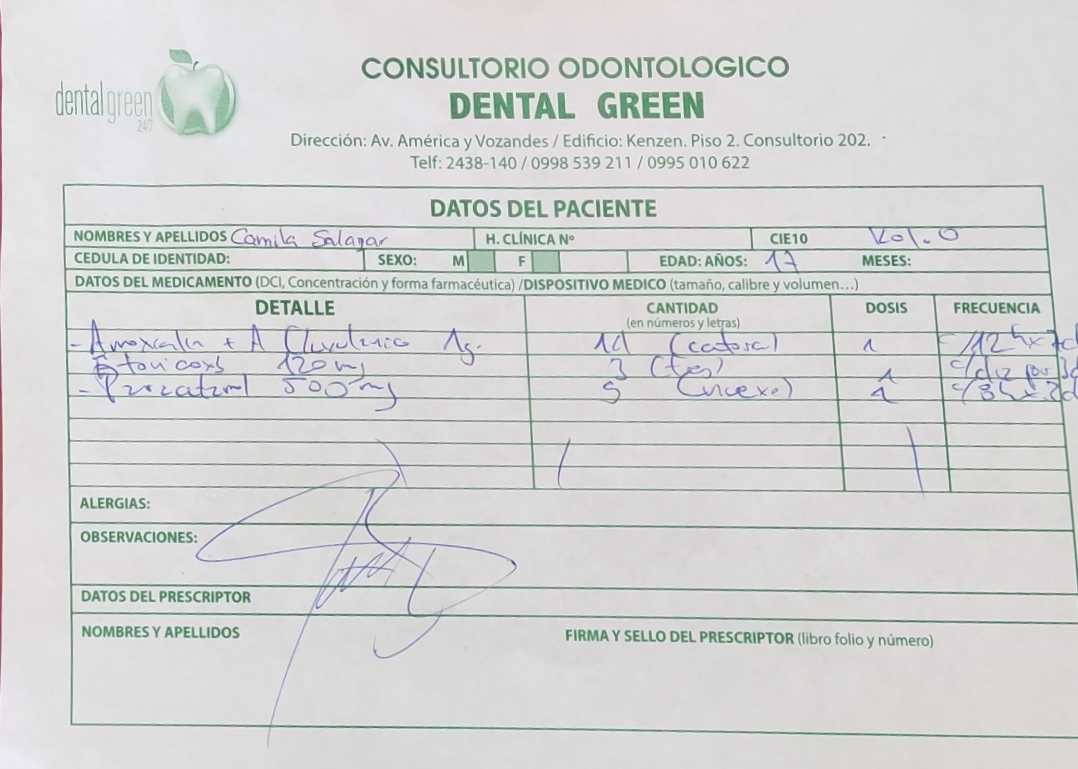 dental green
24/7
CONSULTORIO ODONTOLOGICO
DENTAL GREEN
Dirección: Av. América y Vozandes / Edificio: Kenzen. Piso 2. Consultorio 202.
Telf: 2438-140 / 0998 539 211 / 0995 010 622
DATOS DEL PACIENTE
NOMBRES Y APELLIDOS Camila Salazar H. CLÍNICA Nº CIE10 K01.0
CEDULA DE IDENTIDAD: SEXO: M F EDAD: AÑOS: 17 MESES:
DATOS DEL MEDICAMENTO (DCI, Concentración y forma farmacéutica) /DISPOSITIVO MEDICO (tamaño, calibre y volumen...)
DETALLE CANTIDAD DOSIS FRECUENCIA
(en números y letras)
- 1g. 14 (catorce) 1 c/12h x 7d
120 mg 3 (tres) 1 c/día por 3d
- 500 mg 9 (nueve) 1 c/8h x 3d
ALERGIAS:
OBSERVACIONES:
DATOS DEL PRESCRIPTOR
NOMBRES Y APELLIDOS FIRMA Y SELLO DEL PRESCRIPTOR (libro folio y número)